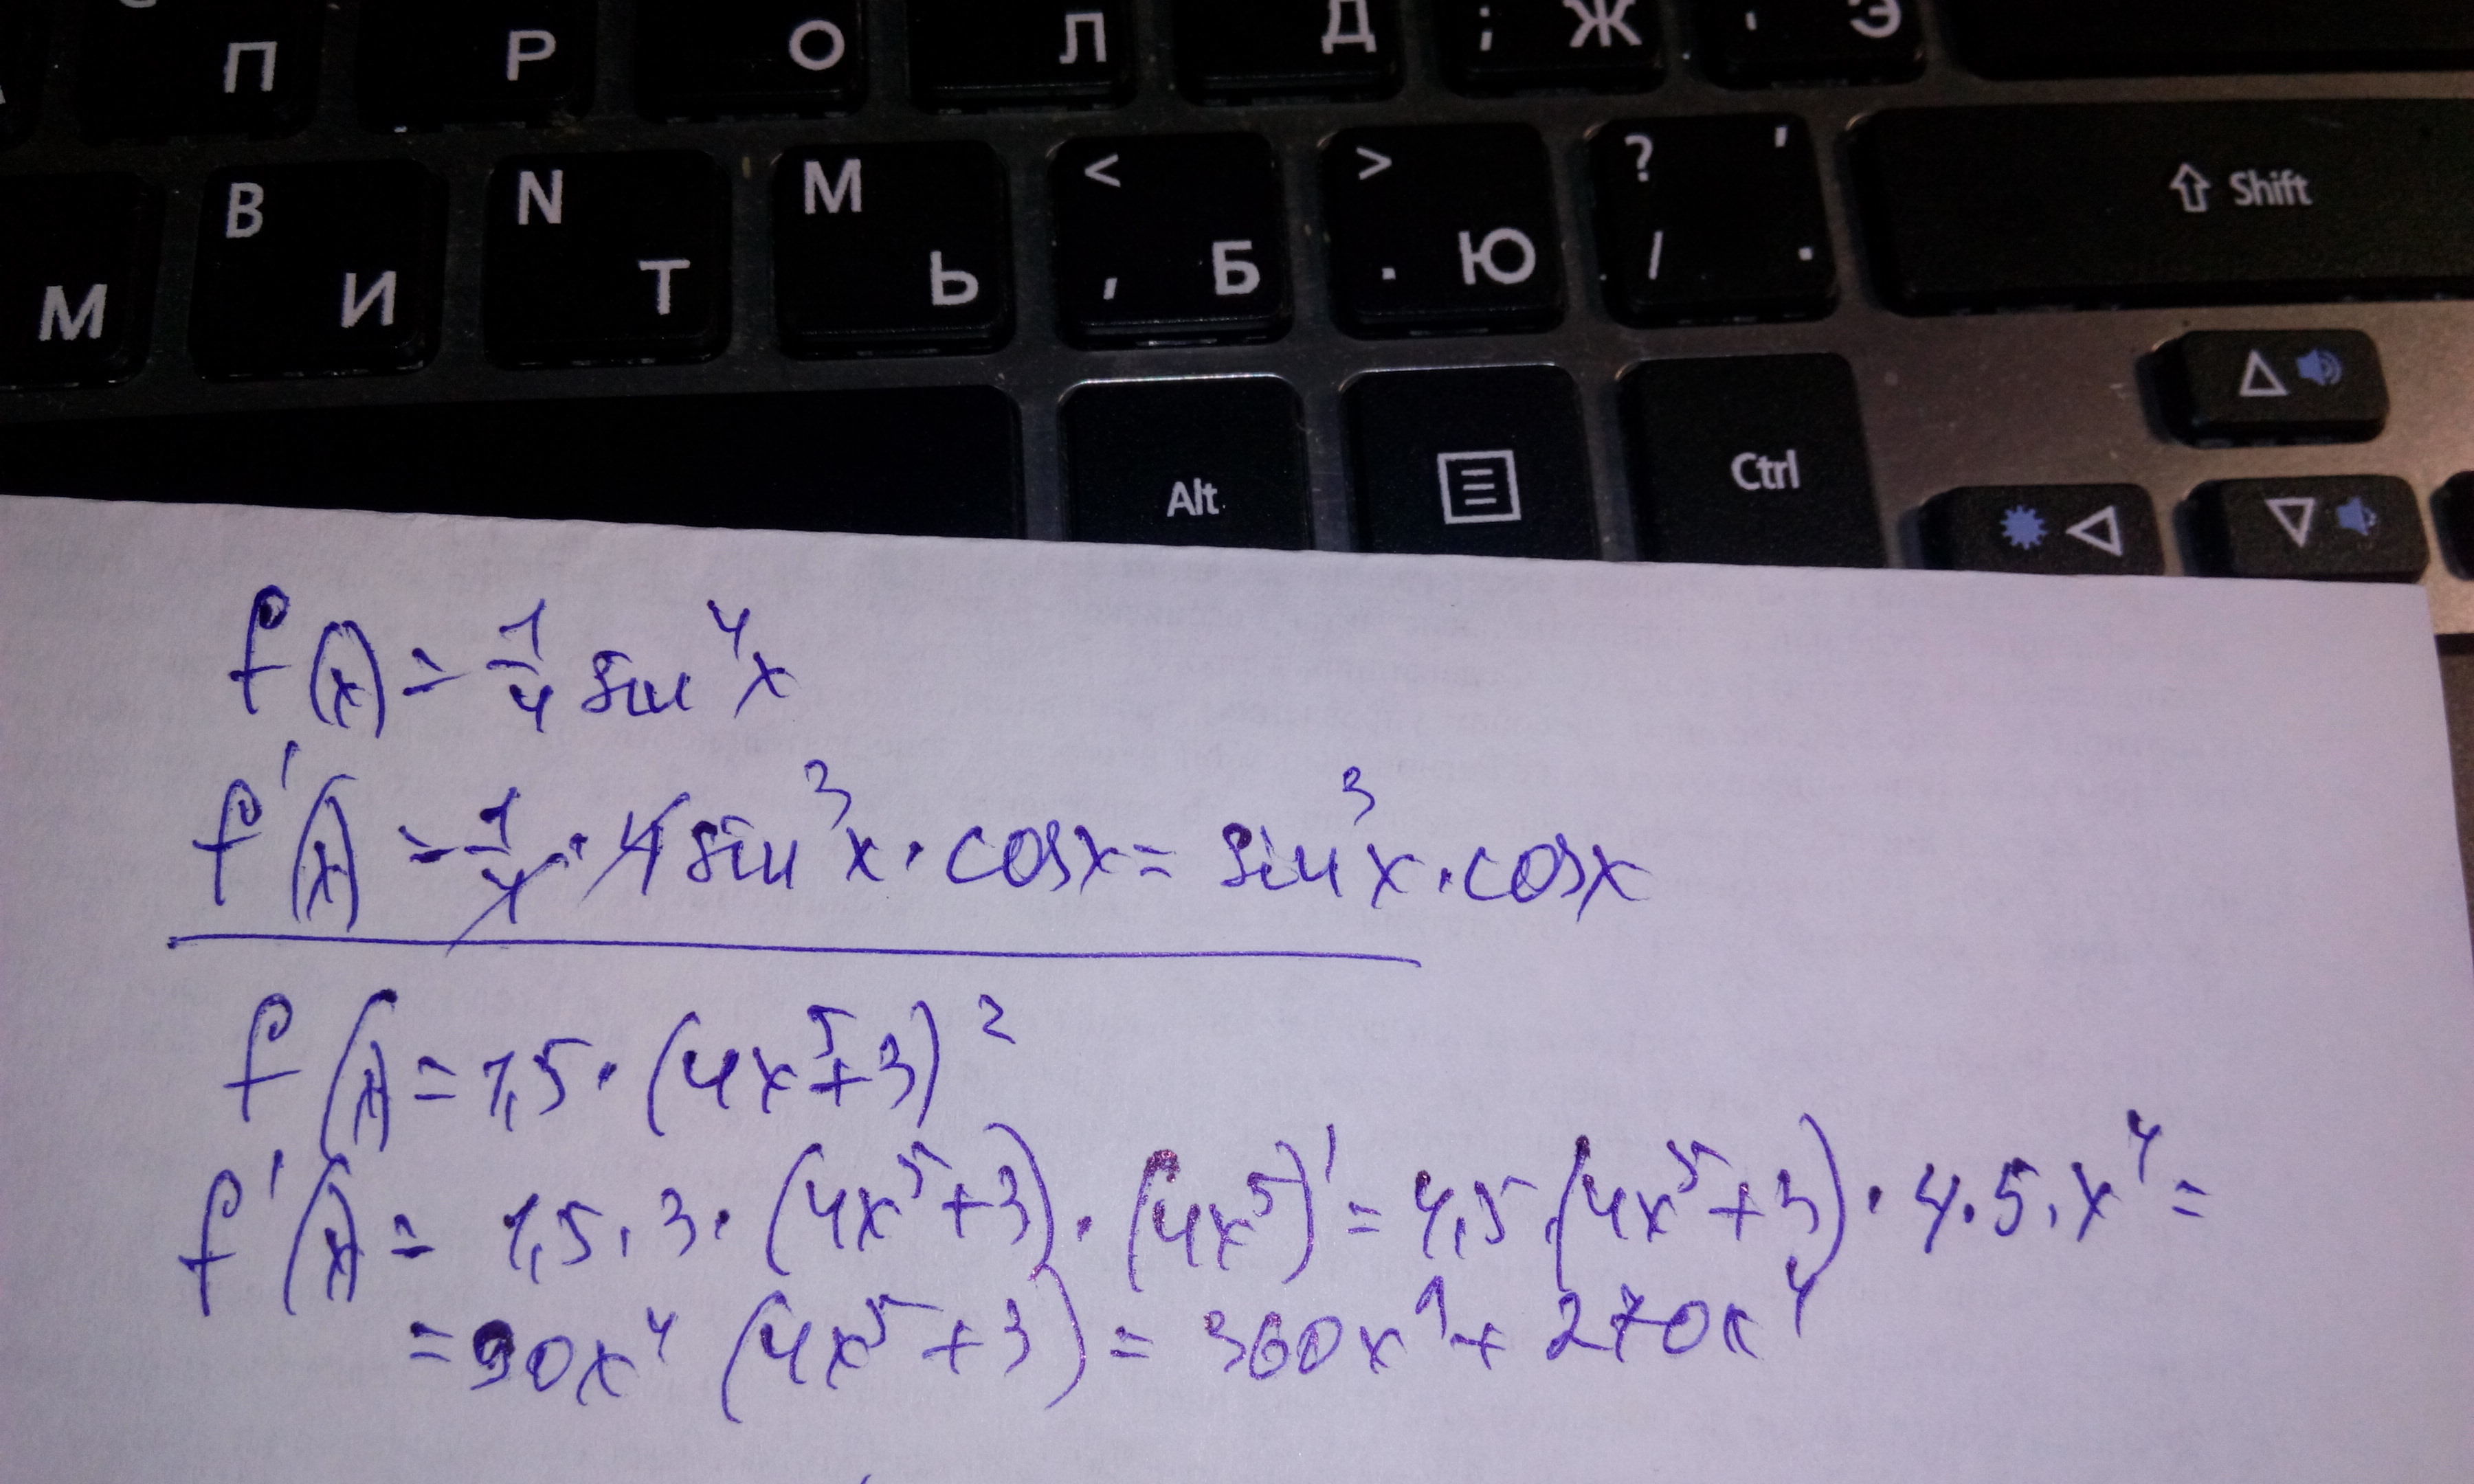 П Р О Л Д ; Ж ' Э
М B И N Т M Ь < , Б > . Ю ? / ' . Shift
Alt Ctrl
f(x) = 1/4 sin⁴x
f'(x) = 1/4 · 4 sin³x · cosx = sin³x · cosx
f(x) = 1,5 · (4x⁵+3)²
f'(x) = 1,5 · 3 · (4x⁵+3) · (4x⁵)' = 4,5 · (4x⁵+3) · 4 · 5 · x⁴ =
= 90x⁴ (4x⁵+3) = 360x⁹ + 270x⁴